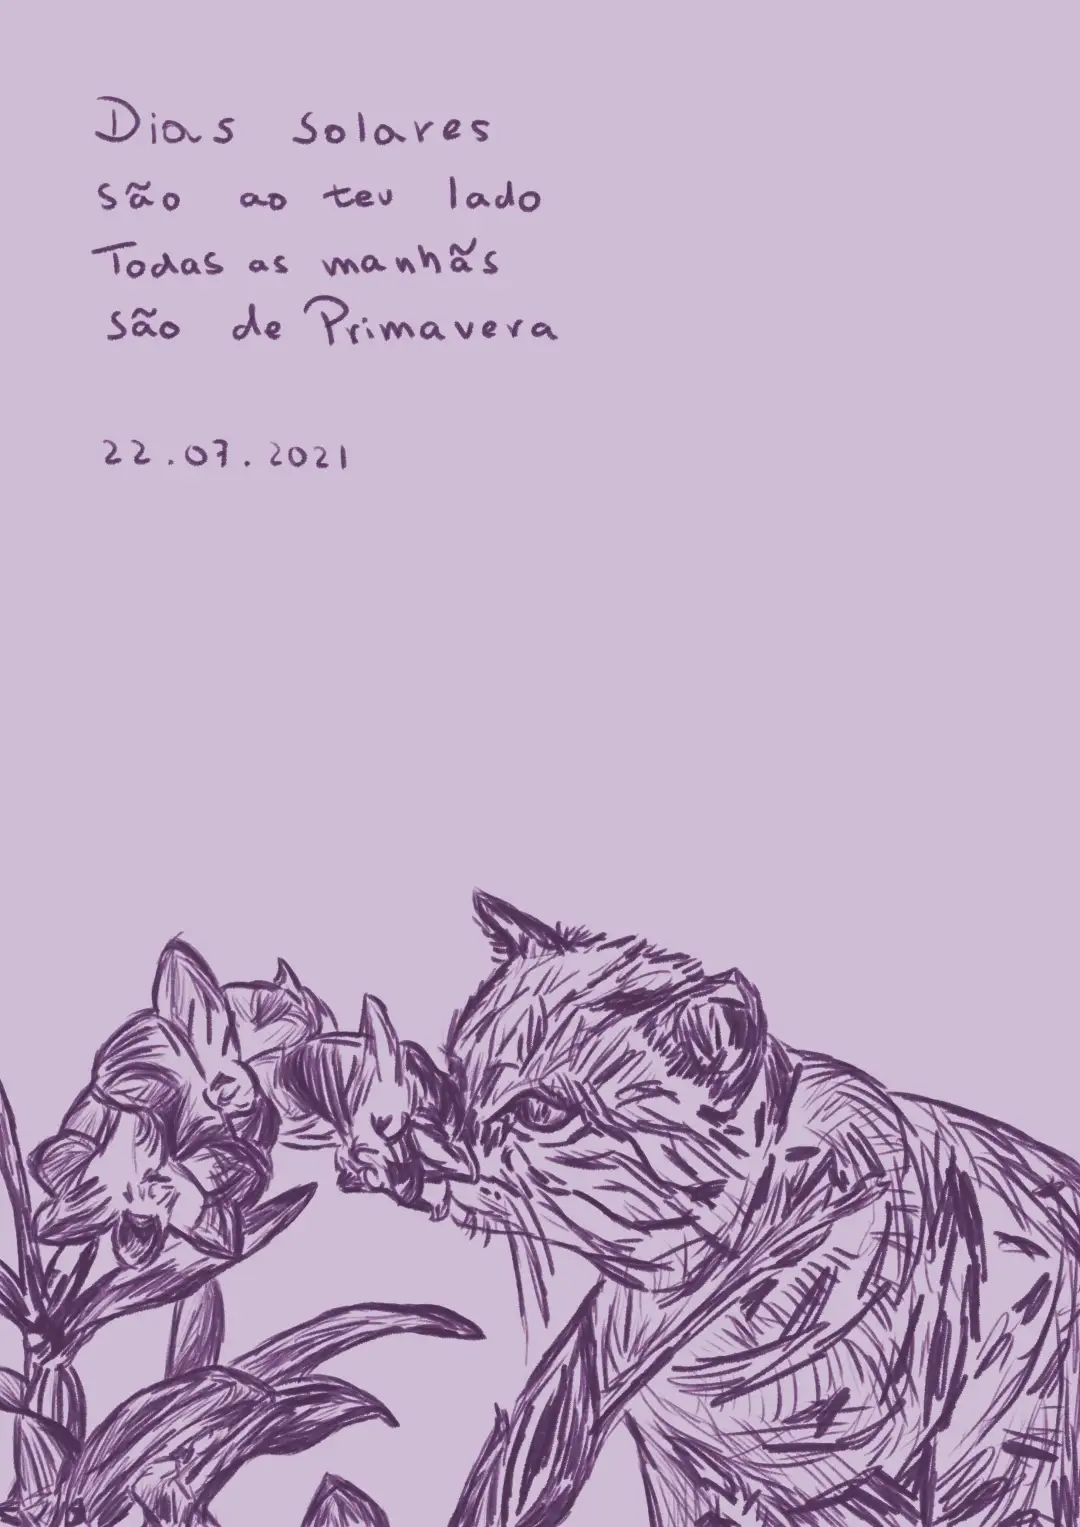 Dias solares
são ao teu lado
Todas as manhãs
são de Primavera
22.07.2021